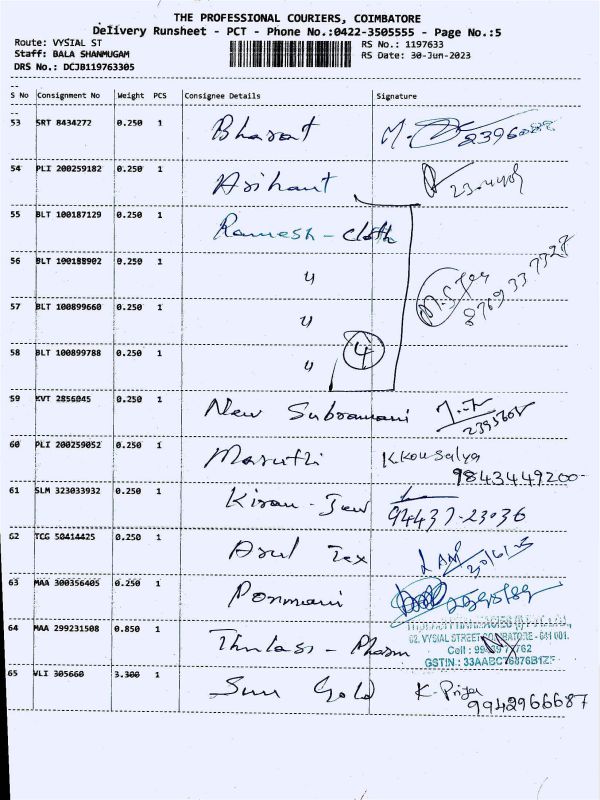 THE PROFESSIONAL COURIERS, COIMBATORE
Delivery Runsheet - PCT - Phone No.:0422-3505555 - Page No.:5
Route: VYSIAL ST
Staff: BALA SHANMUGAM
DRS No.: DCJB119763305
RS No.: 1197633
RS Date: 30-Jun-2023
S No Consignment No Weight PCS Consignee Details Signature
53 SRT 8434272 0.250 1 Bharat
54 PLI 200259182 0.250 1 Arihant
55 BLT 100187129 0.250 1 Ramesh - cloth
56 BLT 100188902 0.250 1 "
57 BLT 100899660 0.250 1 "
8769337328
58 BLT 100899788 0.250 1 "
4
59 KVT 2856045 0.250 1 New Subramani
2395608
60 PLI 200259052 0.250 1 Maruthi K Kousalya
9843449200
61 SLM 323033932 0.250 1 Kiran - Jew
94437-23036
62 TCG 50414425 0.250 1 Arul Tex
63 MAA 300356405 0.250 1 Ponmani
64 MAA 299231508 0.850 1 Thulasi - Pharm
62, VYSIAL STREET COIMBATORE - 641 001.
Cell :
GSTIN.:
65 VLI 305660 3.300 1 Sun Gold K. Priya
9942966687